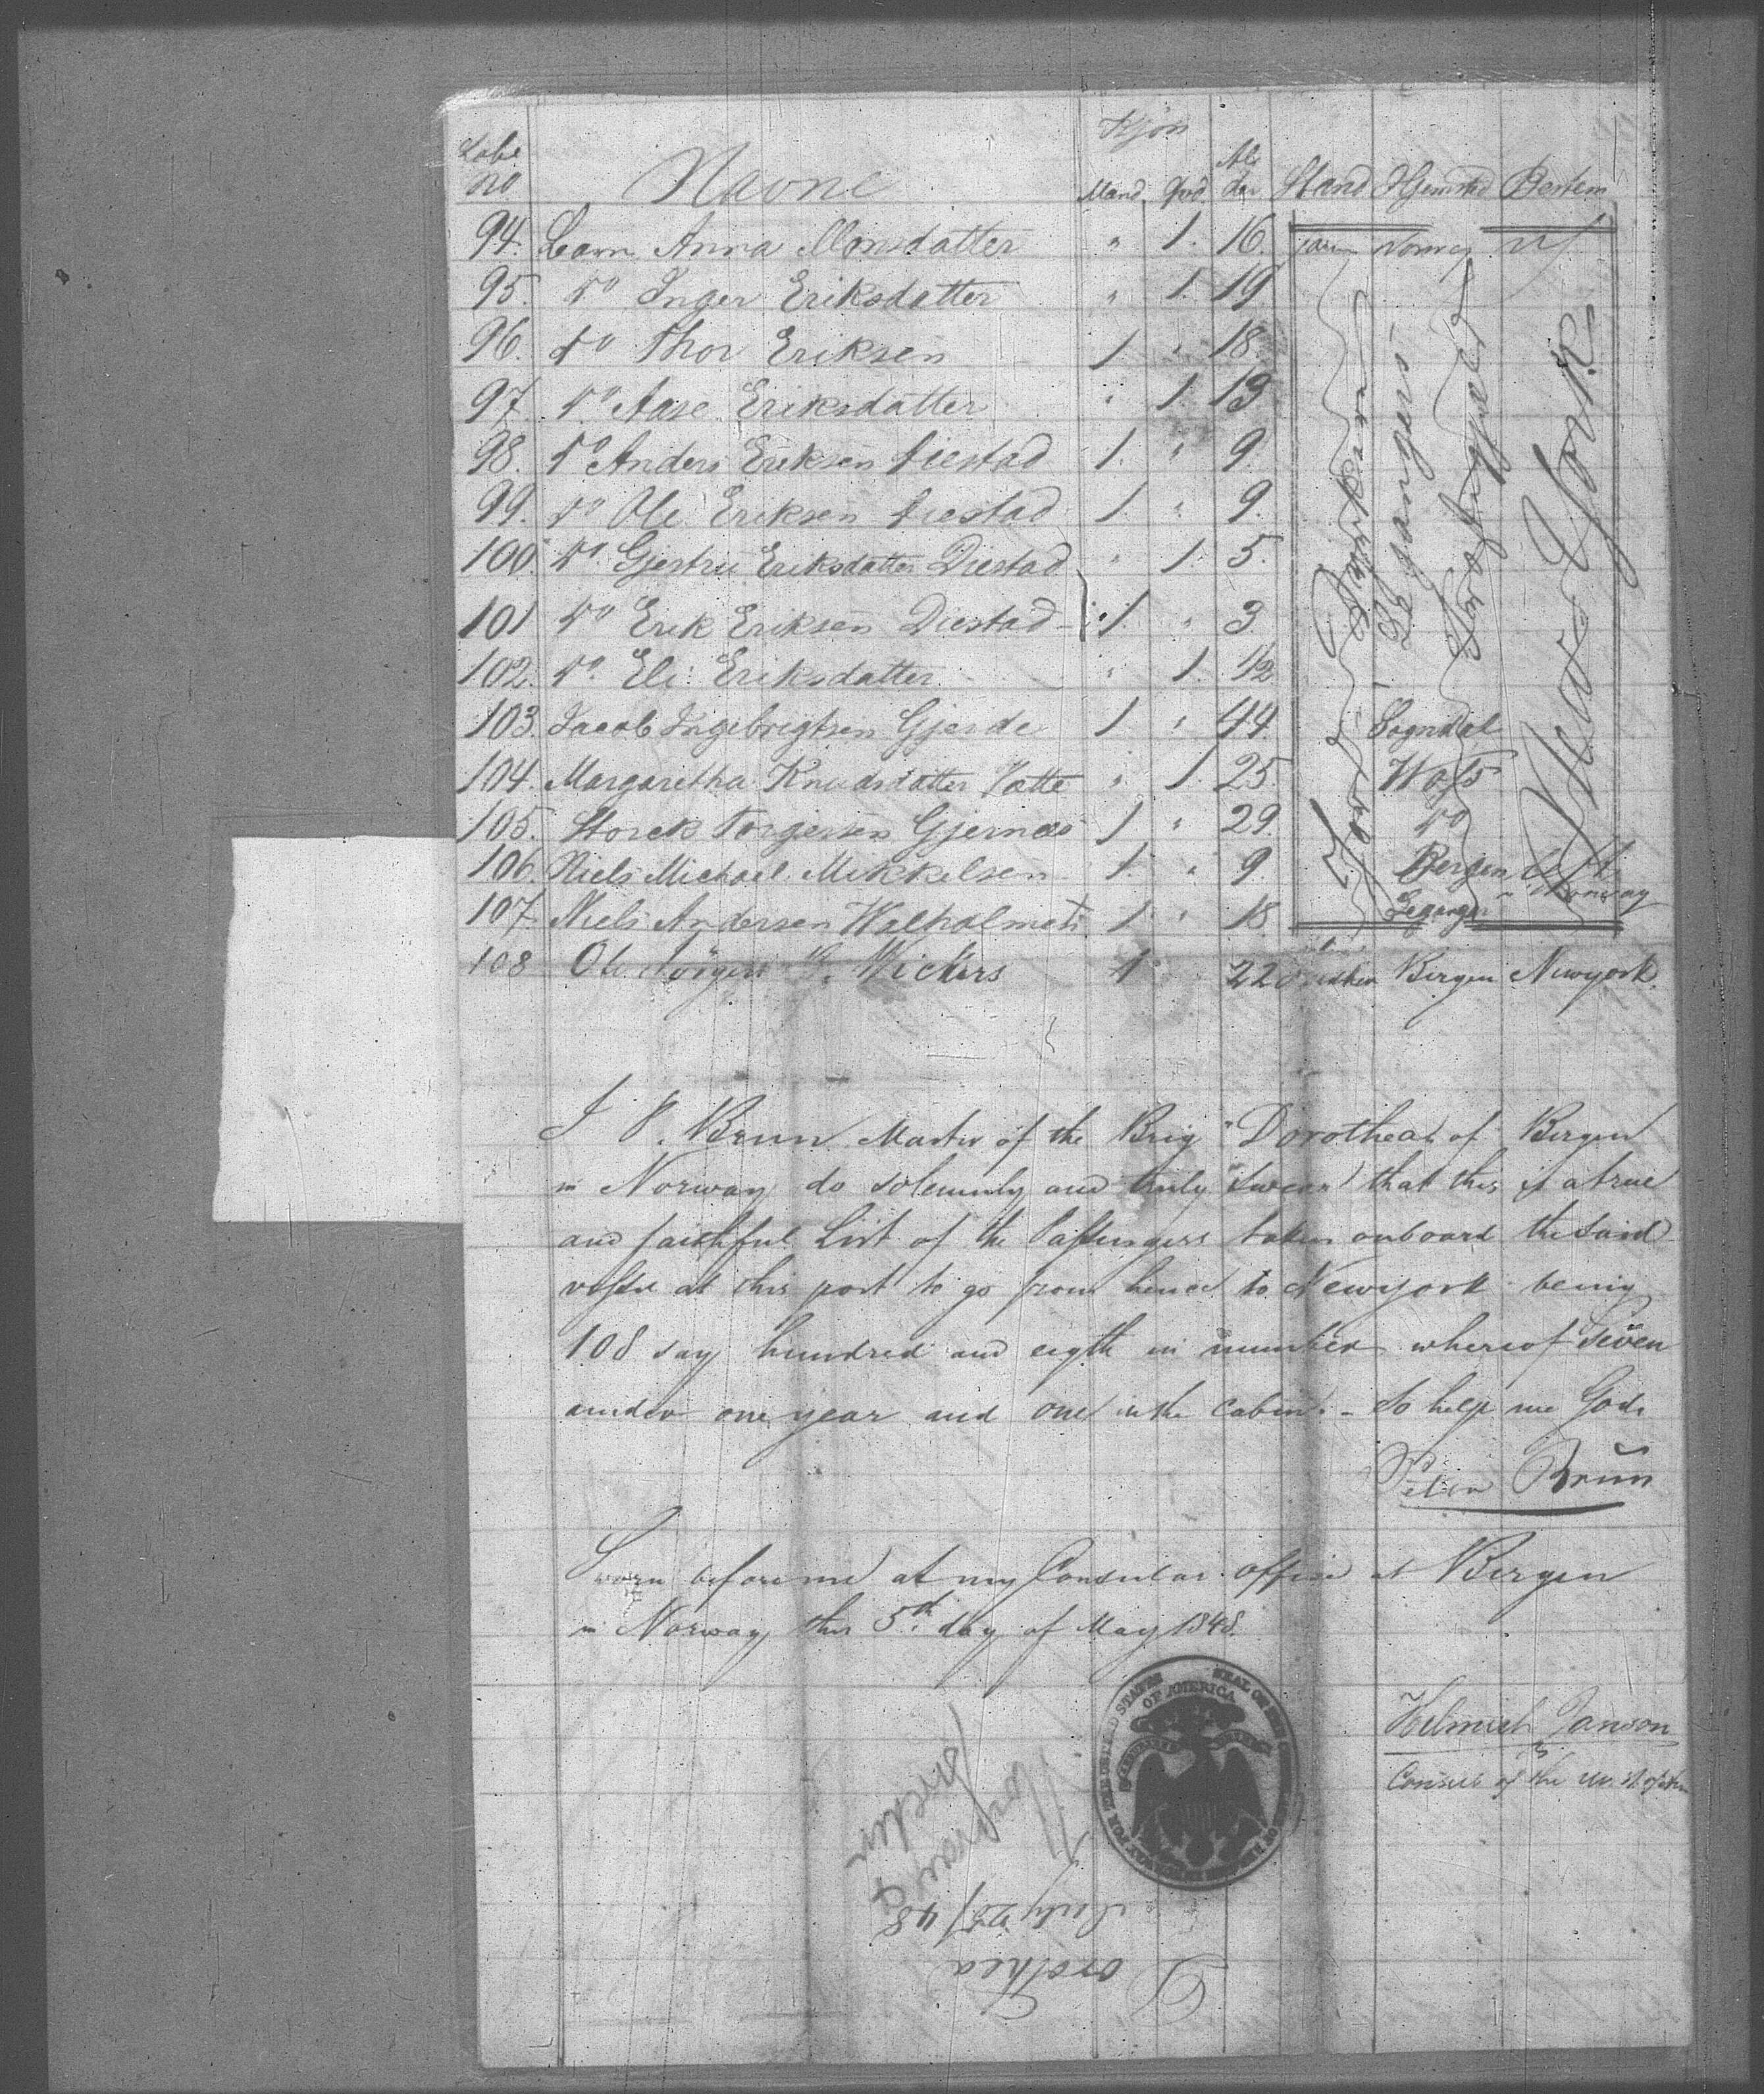 Løbe Kjøn Al
no Navne Mand Qvd. der Stand Hjemsted Bestem
94. Barn Anna Monsdatter " 1. 16. Norway NY
95. do Inger Eriksdatter " 1. 19
96. do Thor Eriksen 1 " 18
97. do Aase Eriksdatter " 1. 13
98. do Anders Eriksen Diestad 1. " 9.
99. do Ole Eriksen Diestad 1. " 9.
100. do Gjertru Eriksdatter Diestad " 1. 5.
101 do Erik Eriksen Diestad 1 " 3
102. do Eli Eriksdatter " 1. 1/2
103. Jacob Ingebrigtsen Gjerde 1 " 44. Sogndal
104. Margaretha Knudsdatter Tatte " 1. 25 Woss
105. Storck Torgersen Gjernæs 1 " 29. do
106. Niels Michael Mikkelsen 1. " 9. Bergen
107. Niels Andersen Walholmen 1. " 18. Leganger Norway
108 Ole Jörgen Wickers 1 22 Bergen Newyork.
Leganger
New York
I P. Brun Master of the Brig "Dorothea" of Bergen
in Norway do solemnly and truly swear that this is a true
and faithful List of the Passengers taken onboard the said
vessel at this port to go from hence to Newyork being
108 say hundred and eigth in number whereof seven
under one year and one in the cabin. - So help me God.
Peter Brun
Sworn before me at my Consular office at Bergen
in Norway this 5th day of May 1848.
Helmich Janson
Consul of the Un. St. of Am
OF AMERICA
Dorothea
July 25/48